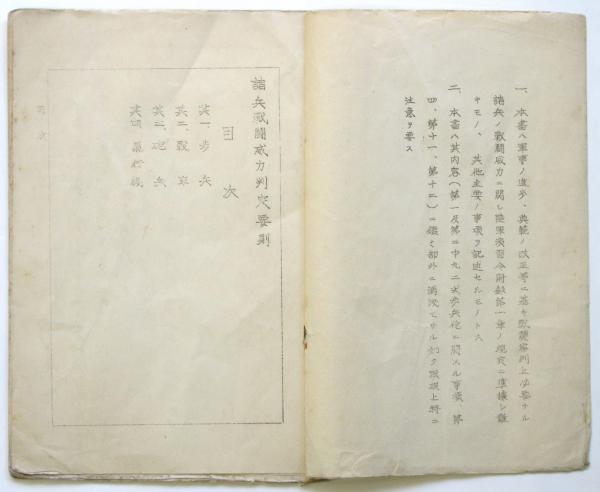 一、本書ハ軍事ノ進歩、典範ノ改正等ニ基キ戰鬪審判上必要ナル
諸兵ノ戰鬪威力ニ關シ陸軍演習令附録第一章ノ規定ニ準據シ難
キモノ、其他主要ノ事項ヲ記述セルモノトス
二、本書ハ其内容(第一及第二中九二式歩兵砲ニ關スル事項、第
四、第十一、第十二)ニ鑑ミ部外ニ ナル如ク取扱上特ニ
注意ヲ要ス
諸兵戰鬪威力判定要則
目次
其一、歩兵
其二、戰車
其三、砲兵
其四、
目次